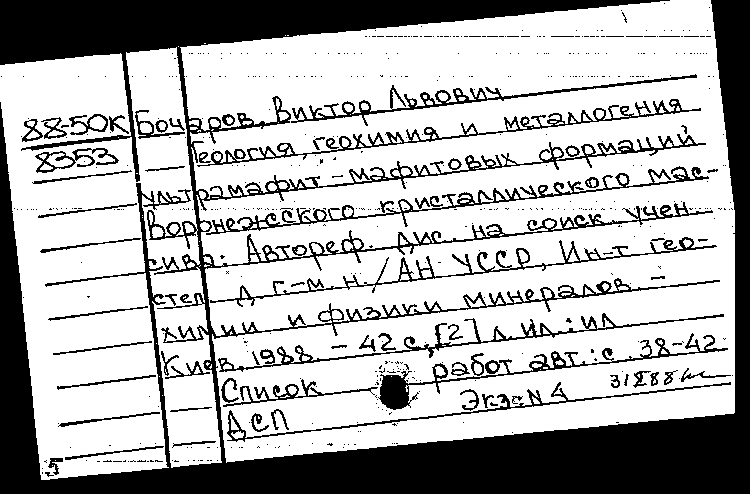 88-50К Бочаров, Виктор Львович
8353 Геология, геохимия и металлогения
ультрамафит-мафитовых формаций
Воронежского кристаллического мас-
сива: Автореф. дис. на соиск. учен.
степ. д. г.-м. н. / АН УССР, Ин-т гео-
химии и физики минералов. –
Киев, 1988. – 42 с., [2] л. ил.: ил
Список работ авт.: с. 38-42
ДСП Экз N 4
5